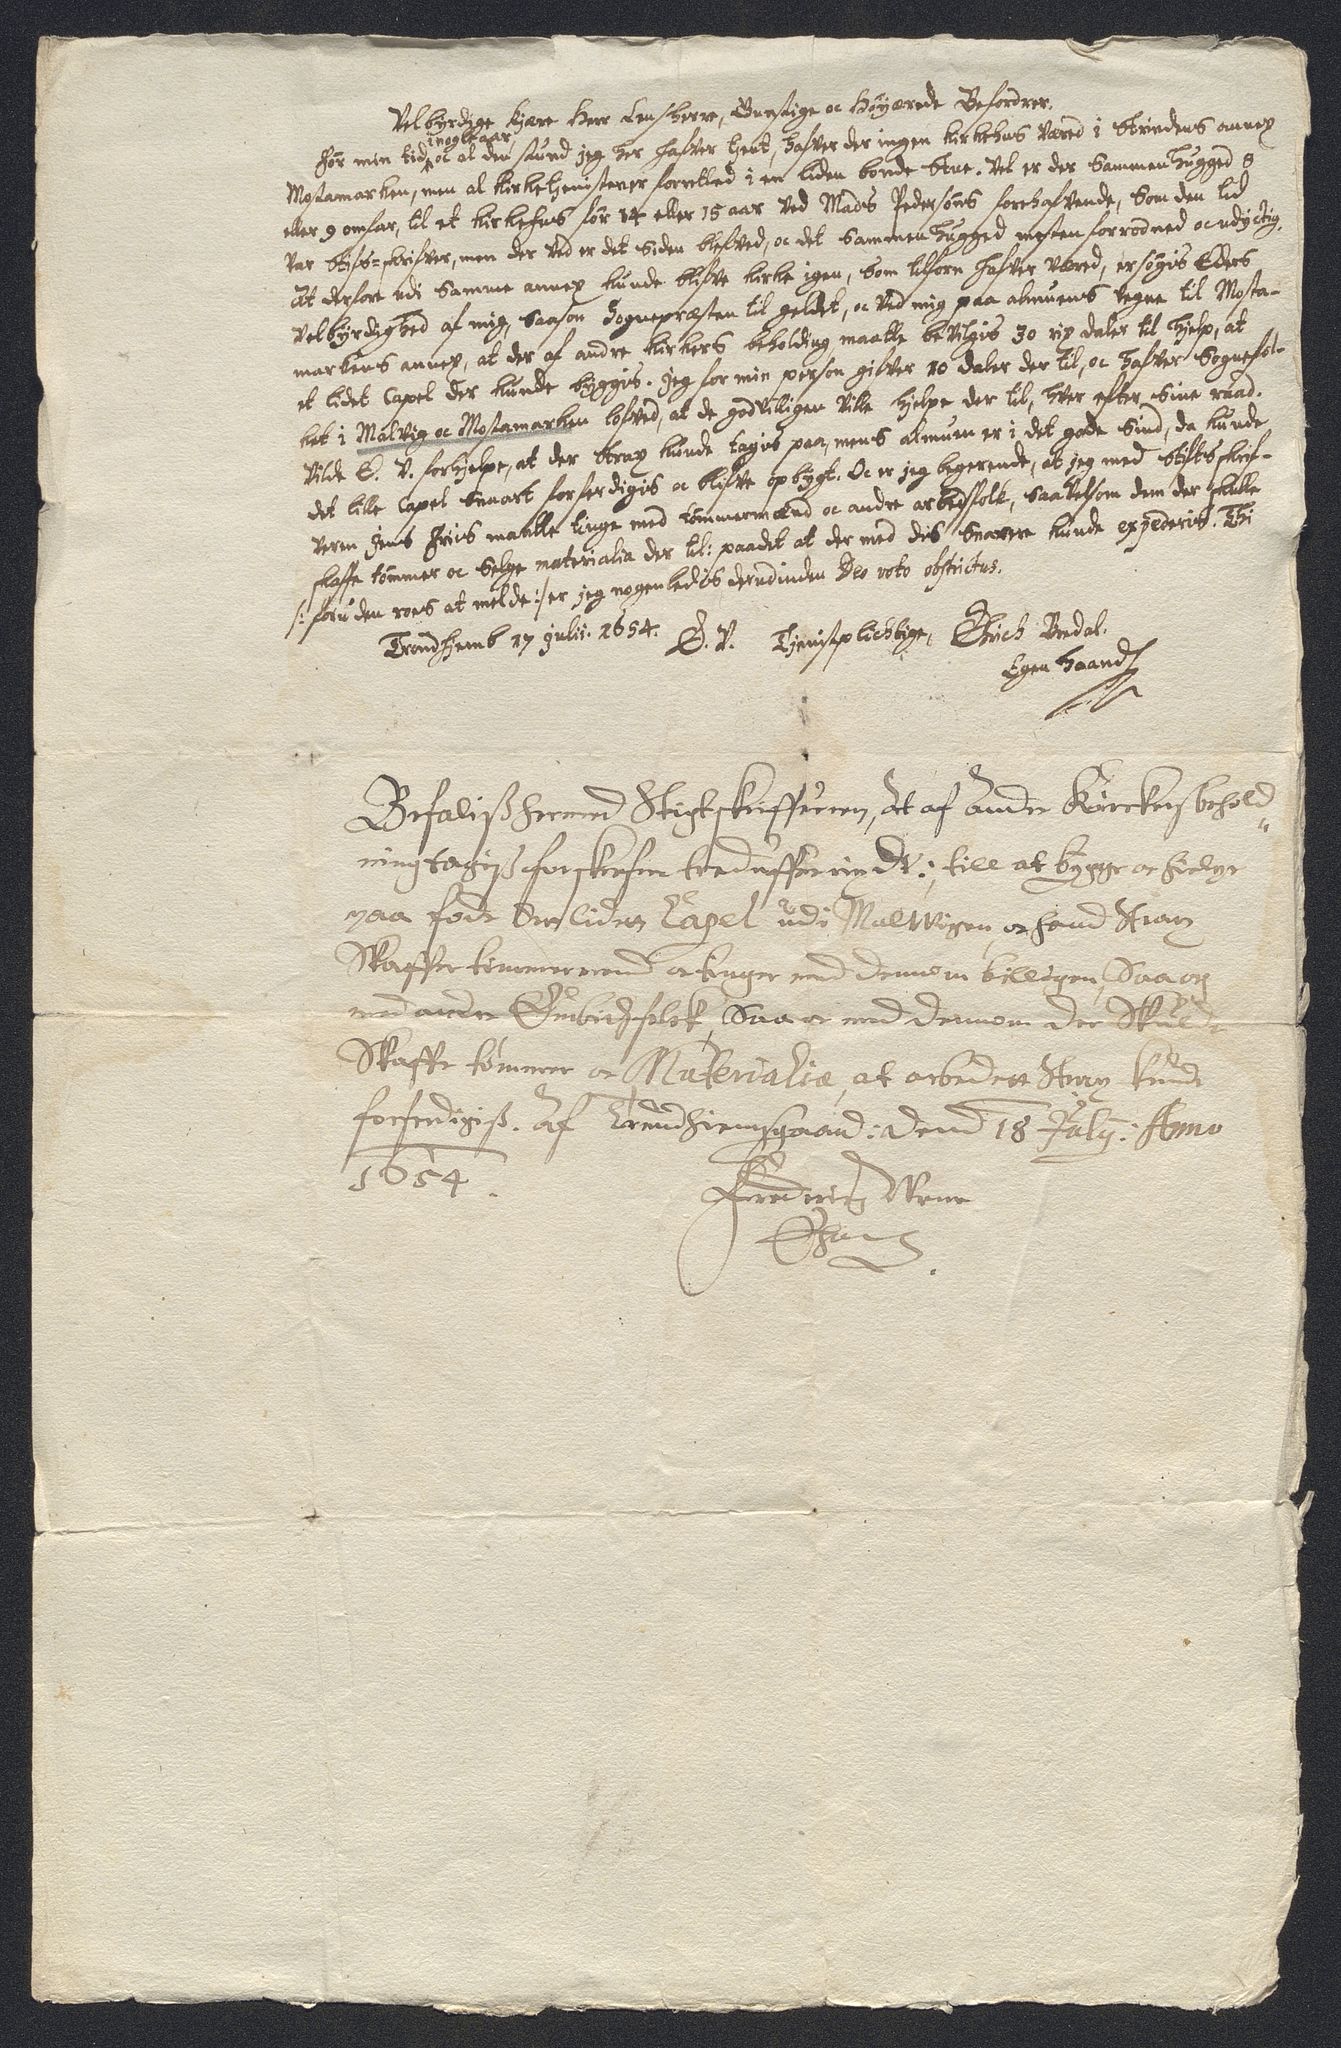 Velbyrdige kjære Herr Lensherre, Gunstige oc Høyærede Befordrer.
i nogle aar,
Før min tid, oc al den stund jeg her hafver tient, hafver der ingen kirkehus væred i Strindens annex
Mostamarken, men al kirketjenisten er forretted i en liden bonde stue. Vel er der sammenhugged 8
eller 9 omfar, til et kirkehus før 14 eller 15 aar ved Mads Pedersøns forehafvende, som den tid
var Stifs-skrifver, men der ved er det siden blefved, oc det sammenhugged mesten forrodned oc udyctig.
At derfore udi samme annex kunde blifve kirke igen, som tilforn hafver væred, ersøgis Eders
Velbyrdighed af mig, saasom Sognepræsten til geldet, oc ved mig paa almuens vegne til Mosta-
markens annex, at der af andre kirkers beholding maatte bevilgis 30 rix daler til hjelp, at
et lidet Capel der kunde byggis. Jeg for min person gifver 10 daler der til, oc hafver Sognefol-
ket i Malvig oc Mostamarken lofved, at de godvilligen ville hjelpe der til, hver efter sine raad.
Vilde E. V. forhjelpe, at der strax kunde tagis paa, mens almuen er i det gode sind, da kunde
det lille Capel snaart forferdigis oc blifve opbygt. Oc er jeg begerende, at jeg med Stiftsskrif-
veren Jens Friis maatte tinge med tømmermænd oc andre arbedsfolk, saavelsom dem der skulle
skaffe tømmer oc selge materialia der til: paadet at der med dis snarere kunde expederis. Thi
/: foruden roes at melde :/ er jeg nogenledis derudinden Deo voto obstrictus.
Trondhjemb 17 Julii. 1654. E. V. Tjenistplichtige, Erich Bredal.
Egen haand
Befalis hermed Stigtskrifferen, At af andre Kierckers behold
ning tagis forskrefne tredufve rix dlr: till at bygge oc hielpe
paa fode den liden Capel udi Malvigen, oc hand strax
Skaffer tømmermend oc tinger med dennom billigen, Saa og
med andre Embidsfolk, Saa oc med dennom der Skulde
Skaffe tømmer oc Materialia, at arbedett strax kunde
forferdigis. Af Trundhiemsgaard: dend 18 July: Anno
1654.
Frederich Wrne
Eha